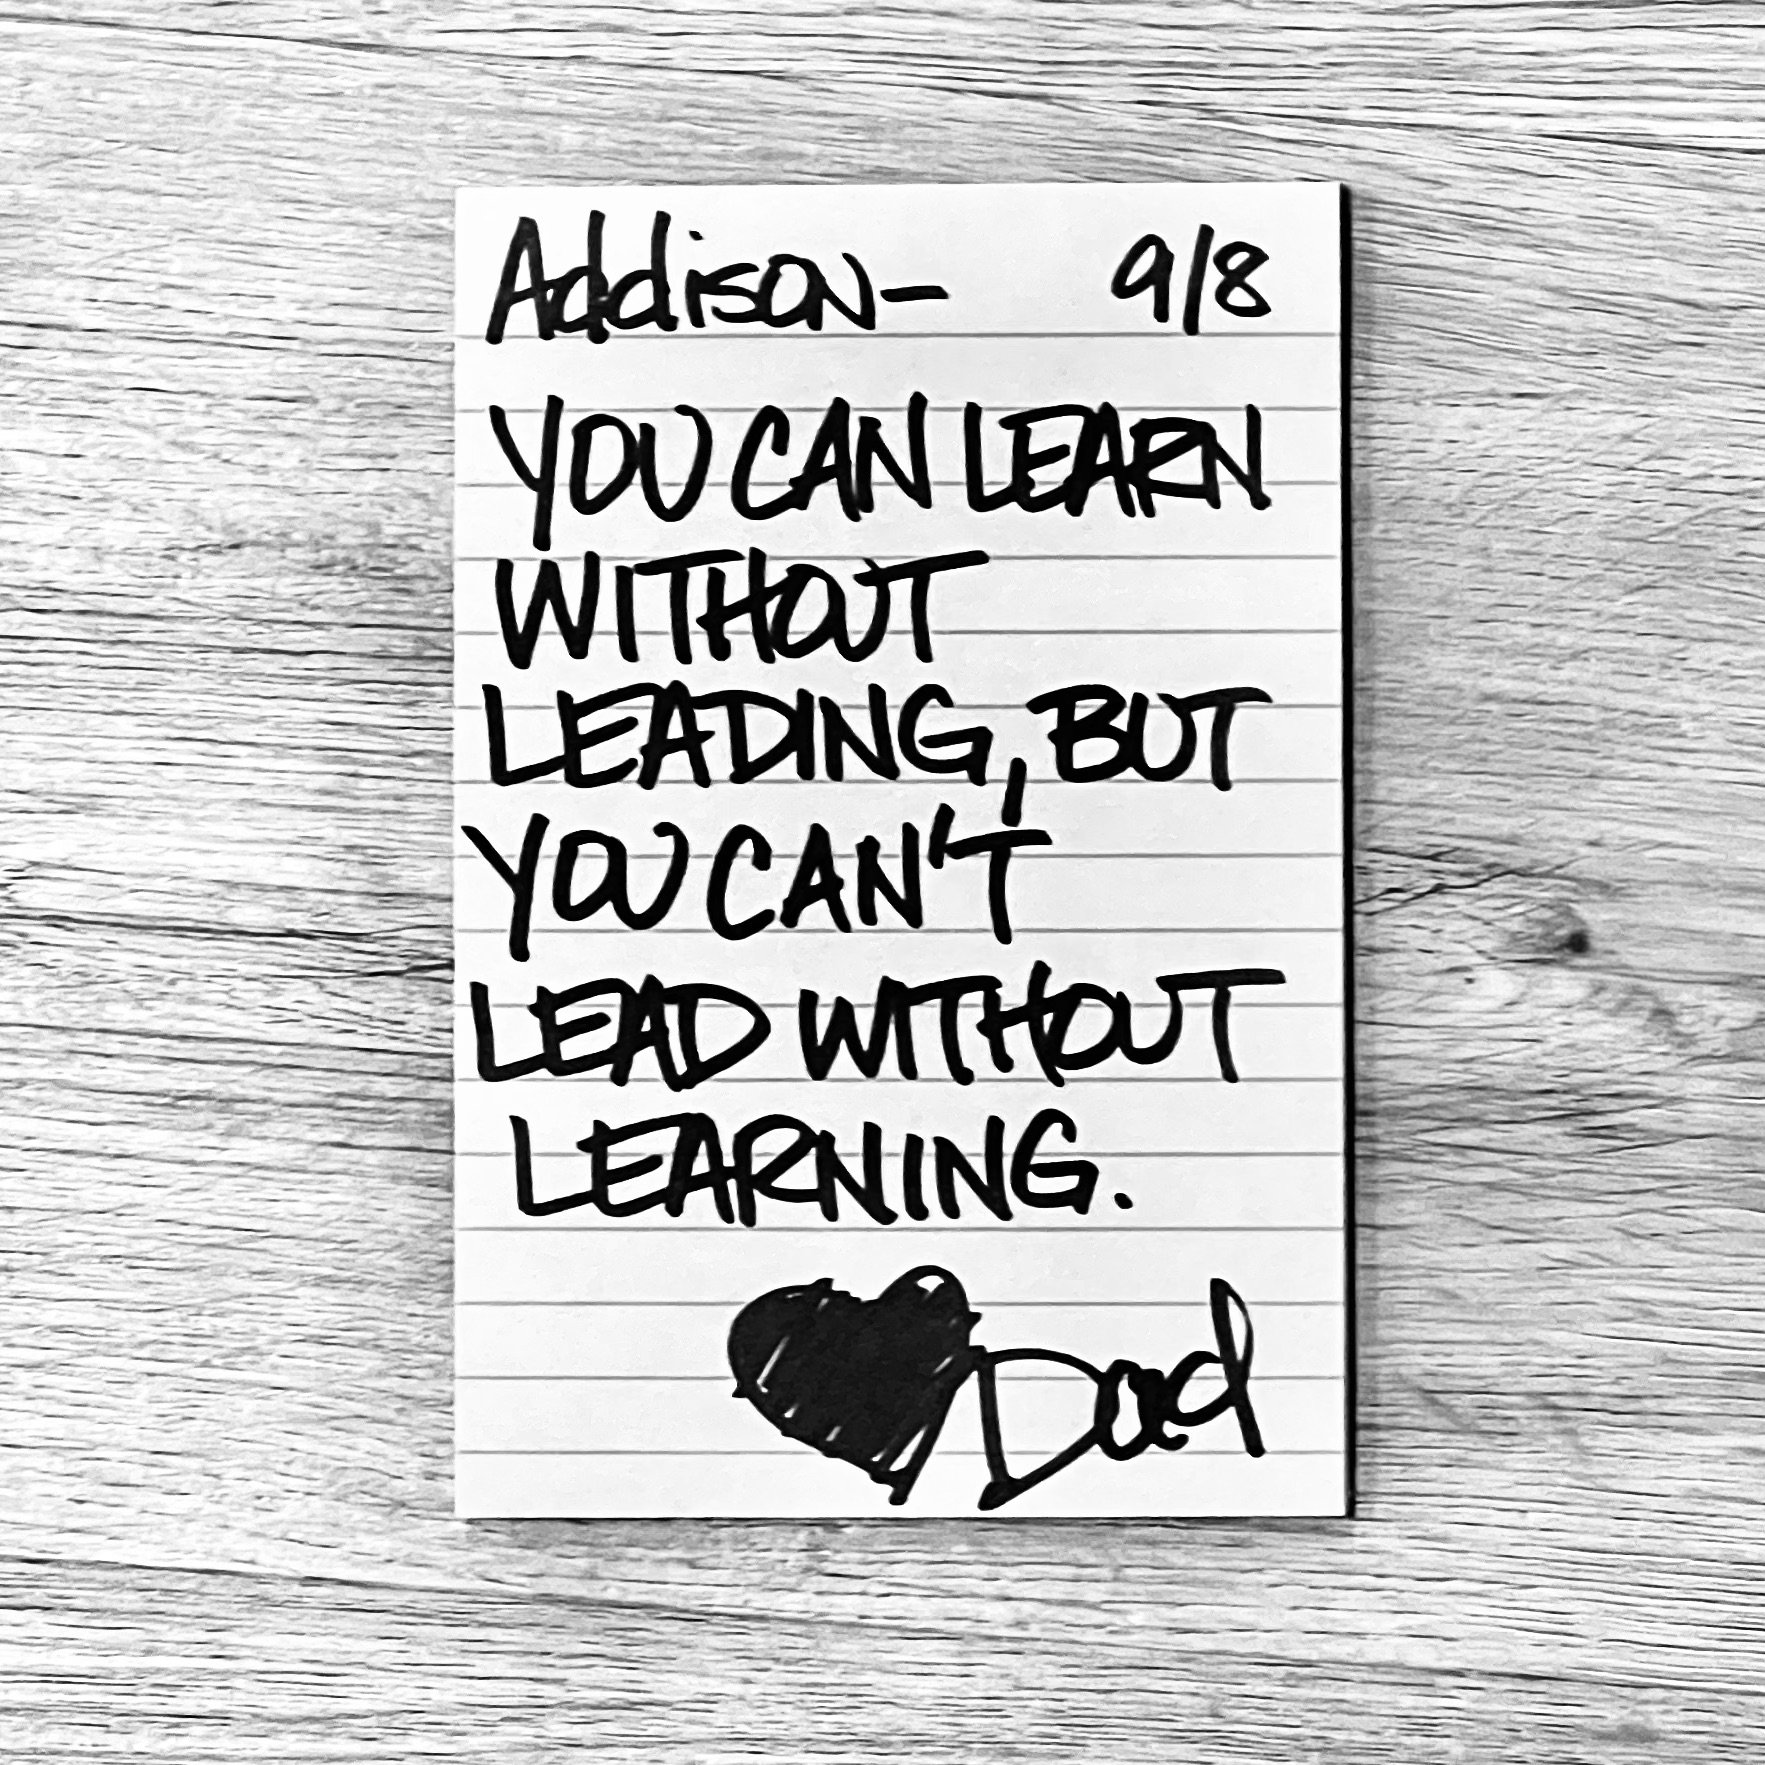 Addison- 9/8
YOU CAN LEARN
WITHOUT
LEADING, BUT
YOU CAN'T
LEAD WITHOUT
LEARNING.
Dad